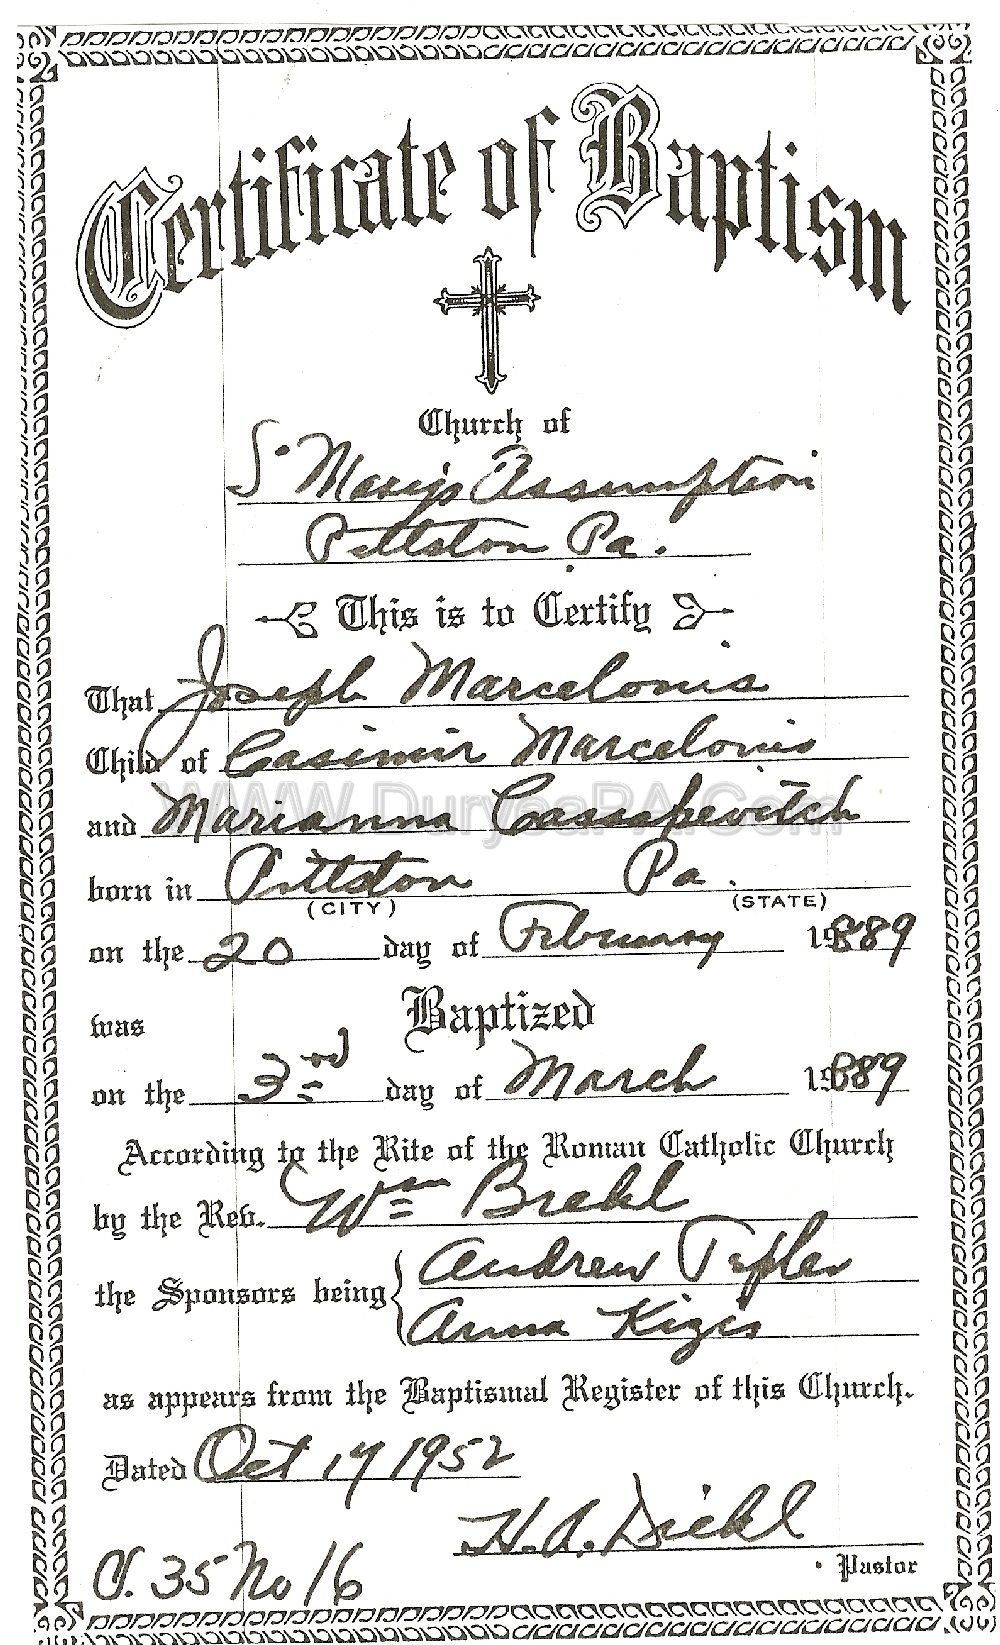 Certificate of Baptism
Church of
S. Mary's Assumption
Pittston Pa.
This is to Certify
That Joseph Marcelonis
Child of Casimir Marcelonis
WWW.DuryeaPA.Com
and Marianna Cassakevitch
born in Pittston Pa.
(CITY) (STATE)
on the 20 day of February 1889
was Baptized
on the 3rd day of March 1889
According to the Rite of the Roman Catholic Church
by the Rev. Wm Brehl
the Sponsors being Andrew
Anna Kizis
as appears from the Baptismal Register of this Church.
Dated Oct 17 1952
H. A. Diehl
Pastor
35 No 16